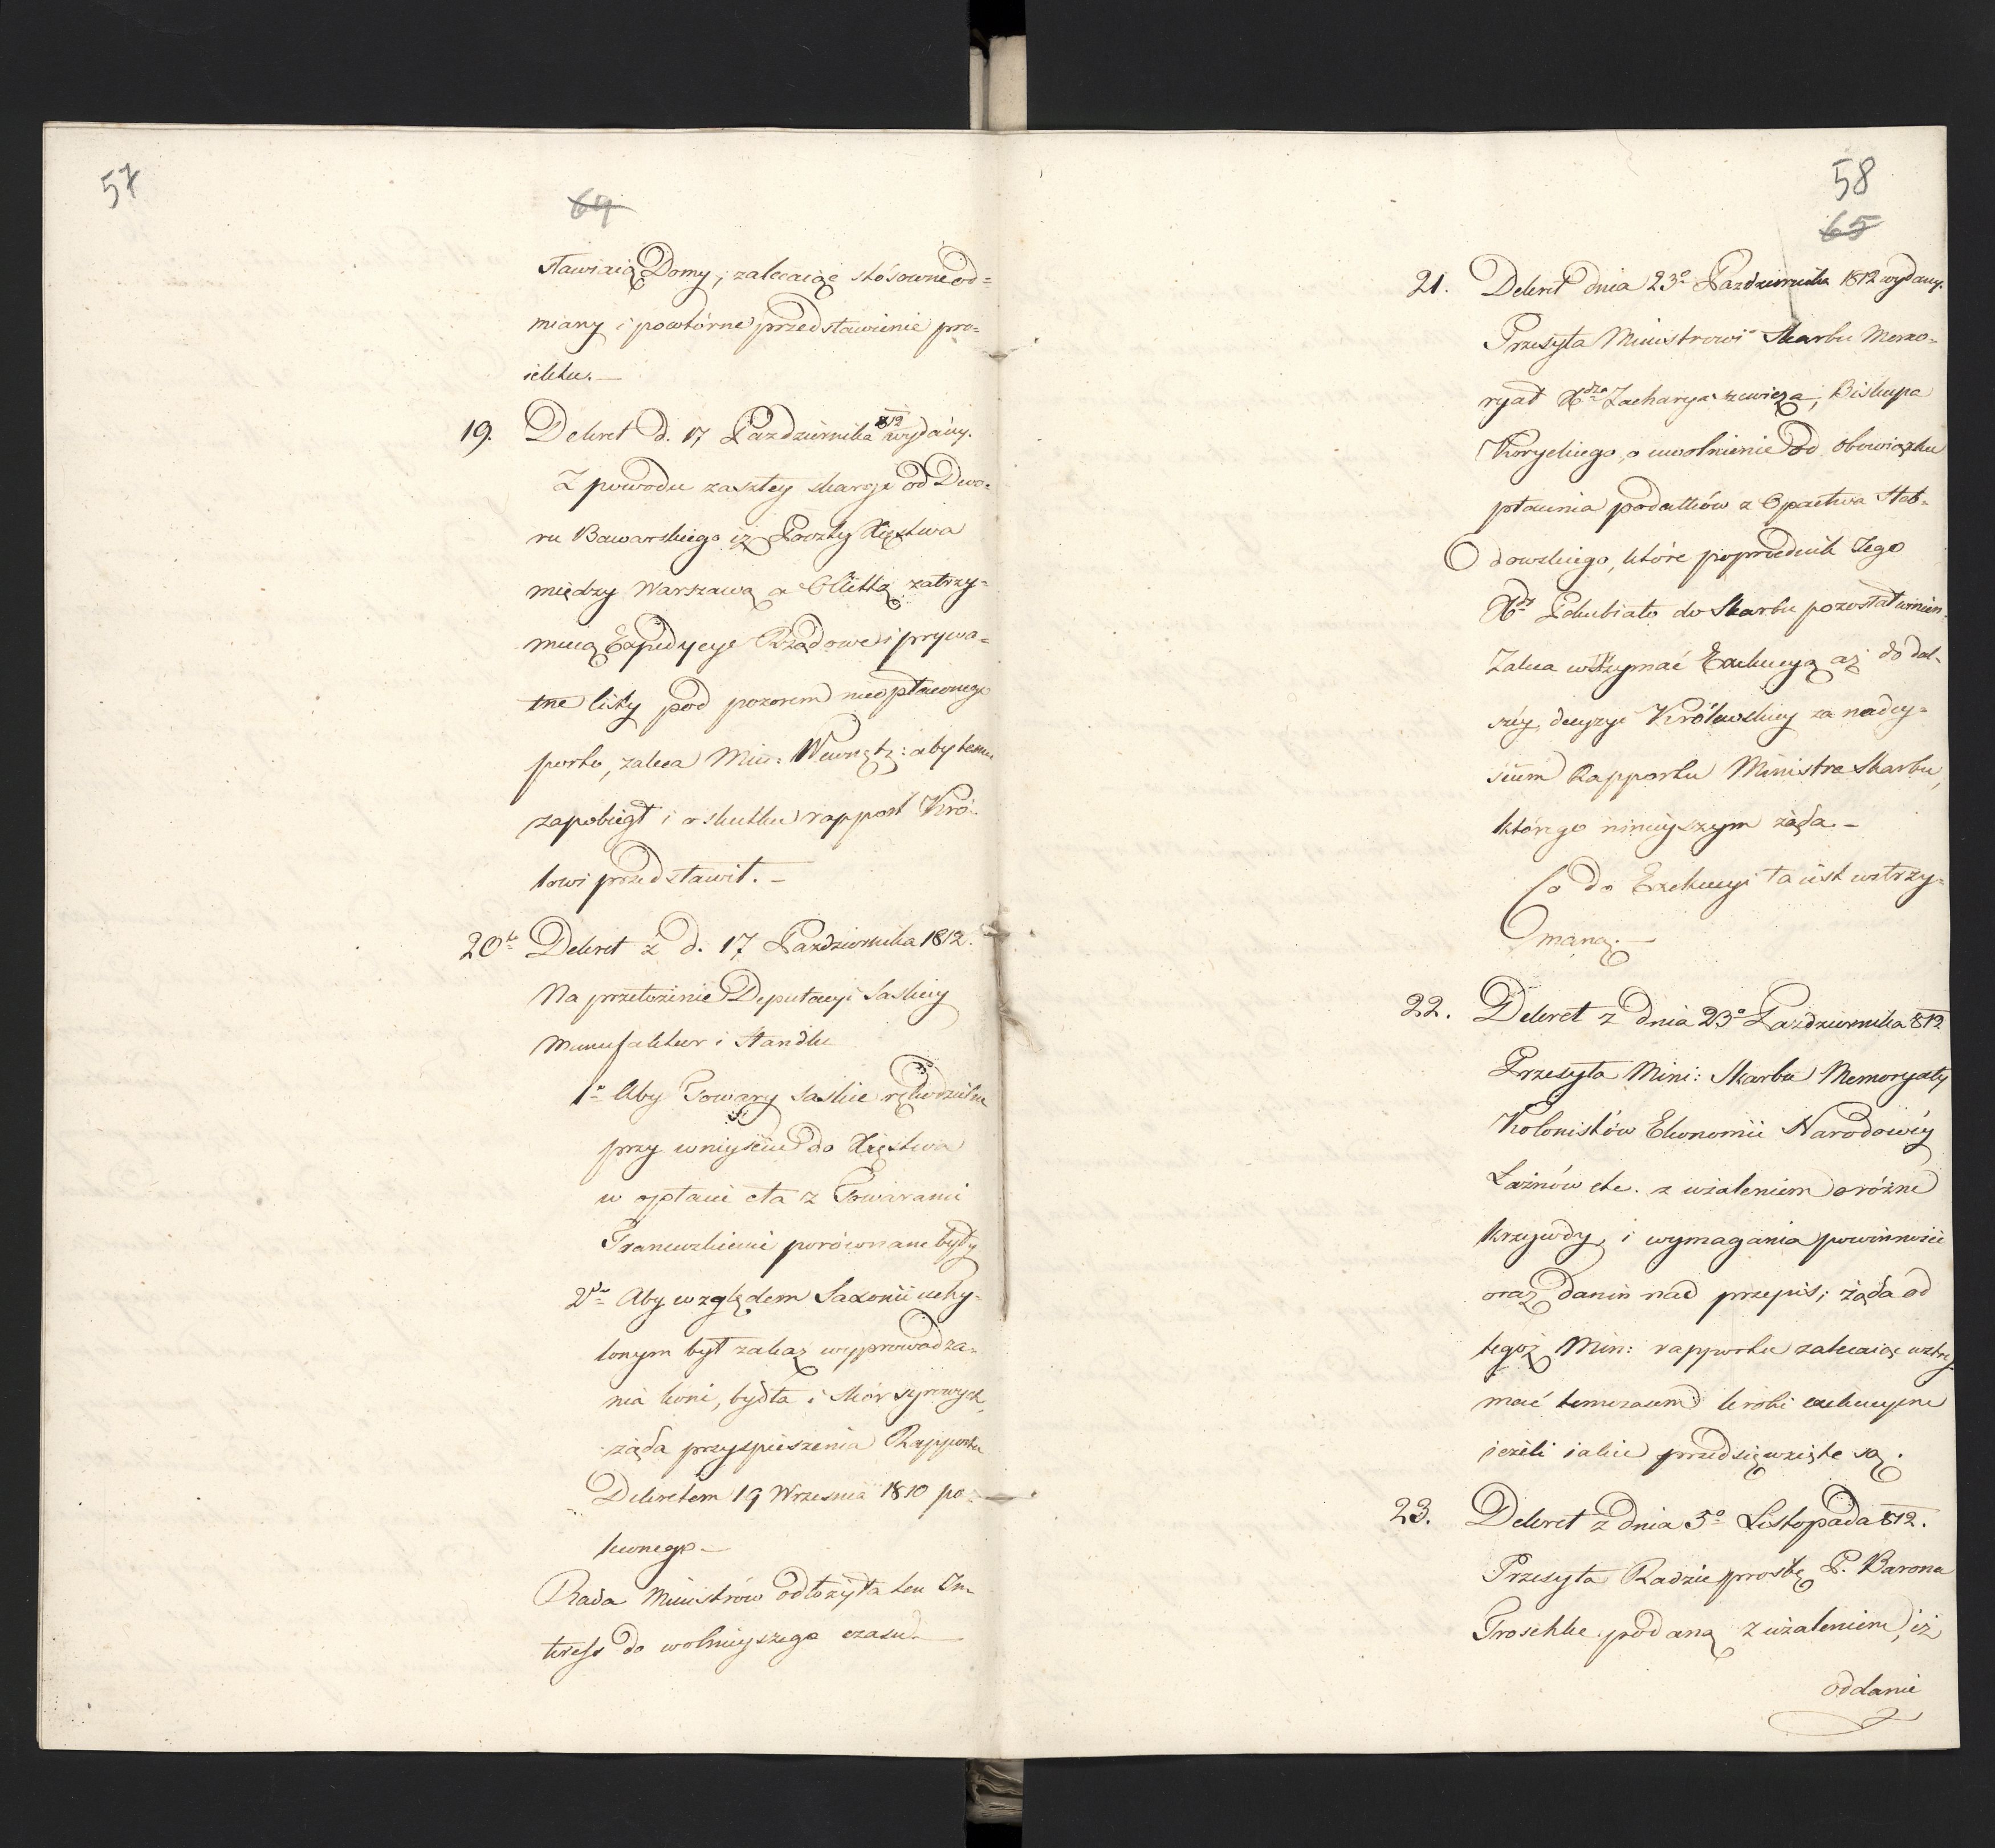 57
64
stawiaią Domy, zalecaiąc stósowne od=
miany i powtórne przedstawienie pro=
iektu. —
19. Dekret d. 17 Pazdziernika 812 wydany.
Z powodu zaszłey skargi od Dwo=
ru Bawarskiego iż Poczty Xięstwa
między Warszawą a zatrzy=
muią Expedycye Rządowe i prywa=
tne listy pod pozorem nieopłaconego
porto, zaleca Min: Wewnętz: aby temu
zapobiegł i o skutku rapport Kró=
lowi przedstawił. —
20to Dekret z d. 17 Pazdziernika 1812.
Na przełożenie Deputacyi Saskiey
Manufaktur i Handlu
1o Aby Towary Saskie rękodzielne
przy wniyściu do Xięstwa
w opłacie cła z Towarami
Francuzkiemi porównane były
2do Aby względem Saxonii uchy=
lonym był zakaz wyprowadza=
nia koni, bydła i skór surowych,
żąda przyspieszenia Rapportu
Dekretem 19 Września 1810 po=
leconego —
Rada Ministrów odłożyła ten In=
teress do wolnieyszego czasu. —
58
65
21. Dekret dnia 23o Pazdziernika 1812 wydany.
Przesyła Ministrowi Skarbu Memo=
ryał Xdza Zacharyaszewicza, Biskupa
Koryckiego, o uwolnienie od obowiązku
płacenia podatków z Opactwa
które poprzednik Jego
Xdz do Skarbu pozostał winien.
Zaleca wstrzymać Exekucyą aż do dal=
széy decyzyi Królewskiey za nadey=
ściem Rapportu Ministra Skarbu,
którego ninieyszym żąda. —
Co do Exekucyi ta iest wstrzy=
maną. —
22. Dekret z dnia 23o Pazdziernika 812
Przesyła Mini: Skarbu Memoryały
Kolonistów Ekonomii Narodowéy
Łaźnów etc. z użaleniem o różne
krzywdy, i wymagania powinności
oraz danin nad przepis; żąda od
tegoż Min: rapportu zalecaiąc wztrzy=
mać temczasem kroki exekucyine
ieżeli iakie przedsięwzięte są.
23. Dekret z dnia 5o Listopada 812.
Przesyła Radzie prośbę P. Barona
Troschke podaną z użaleniem, iż
oddanie